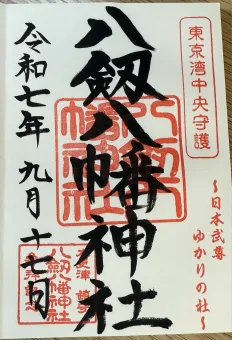 東京湾中央守護
〜日本武尊
ゆかりの社〜
八釼八幡神社
令和七年 九月 十七日
八剱八幡神社